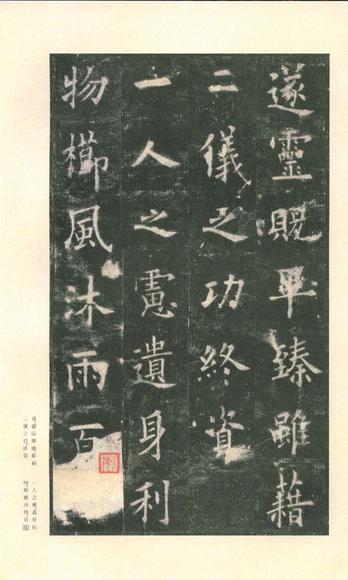 遂靈貺畢臻雖藉
二儀之功終資
一人之慮遺身利
物櫛風沐雨百
遂靈貺畢臻雖藉
二儀之功終資
一人之慮遺身利
物櫛風沐雨百